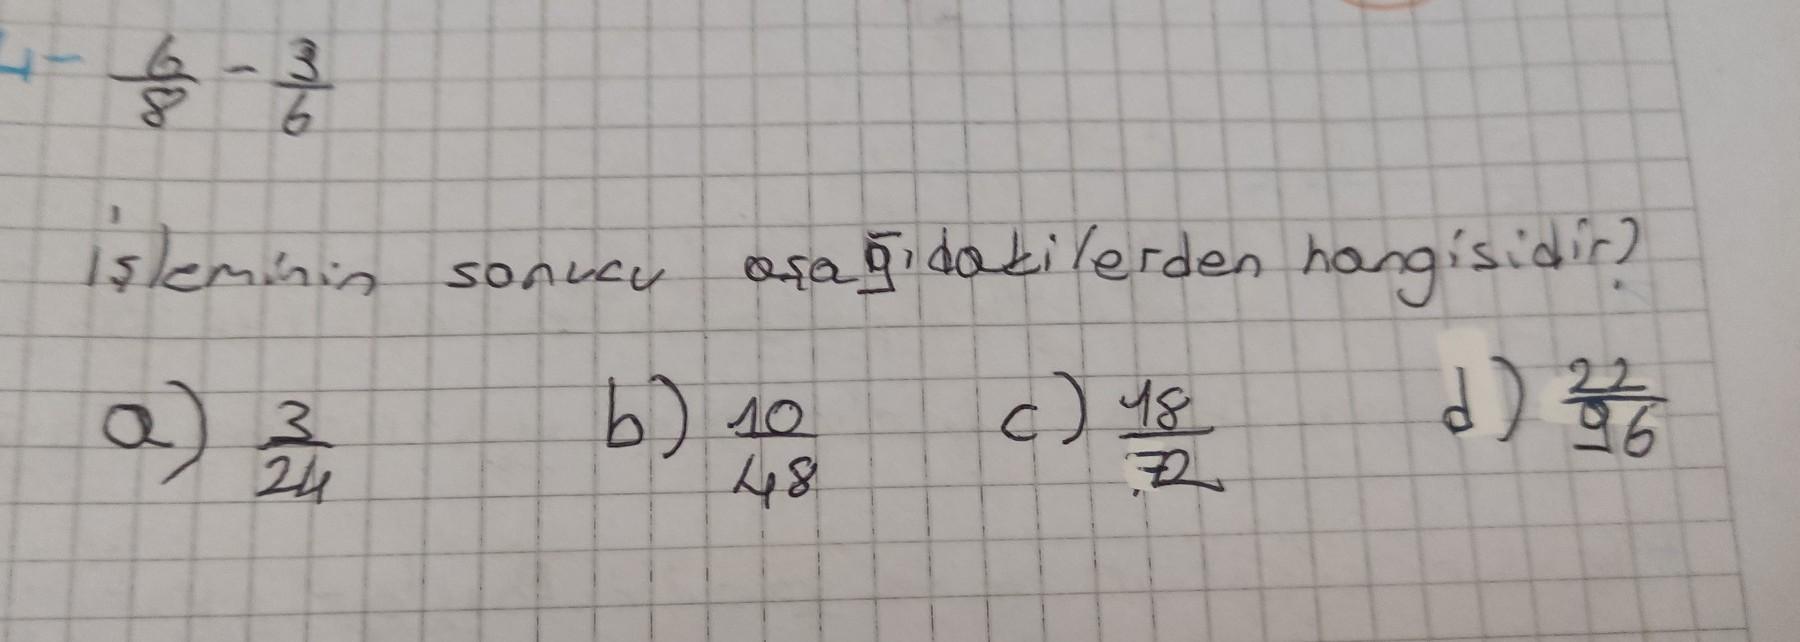 4- 6/8 - 3/6
işleminin sonucu aşağıdakilerden hangisidir?
a) 3/24 b) 10/48 c) 18/72 d) 22/96